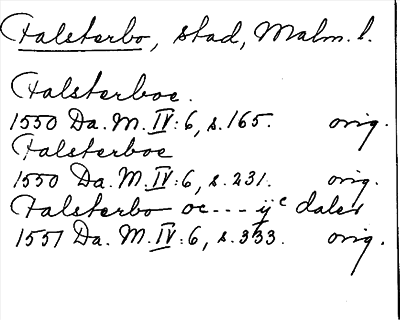 Falsterbo, stad, Malm. l.
Falsterboe.
1550 Da. M. IV: 6, s. 165. orig.
Falsterboe
1550 Da. M. IV: 6, s. 231. orig.
Falsterbo oc --- ijᶜ daler
1551 Da. M. IV: 6, s. 333. orig.